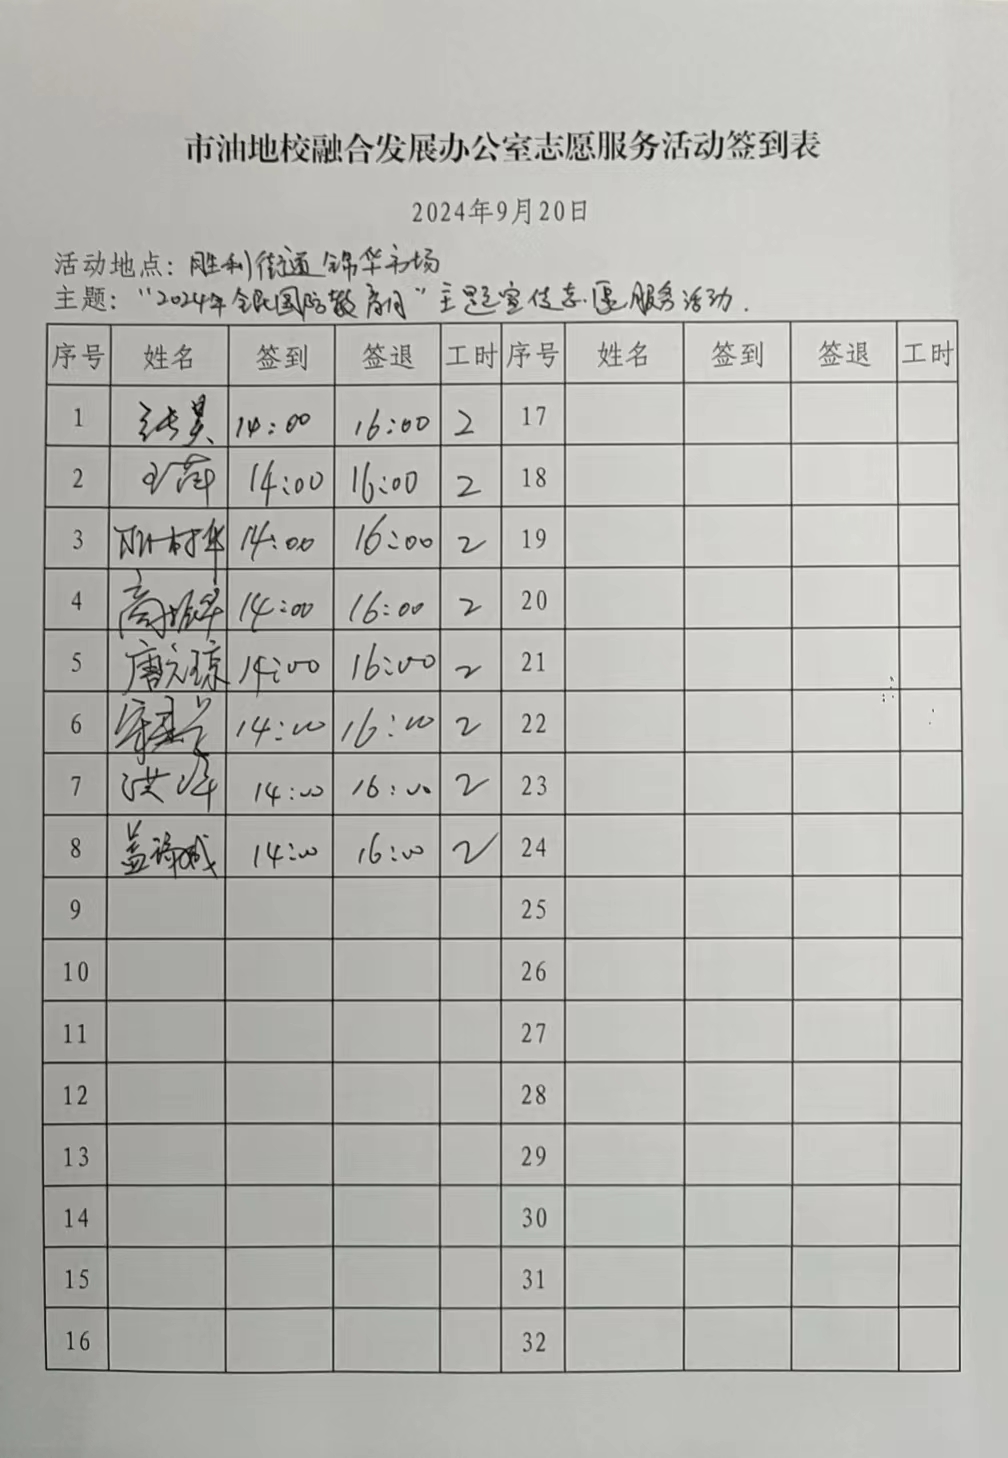 市油地校融合发展办公室志愿服务活动签到表
2024年9月20日
活动地点：胜利街道锦华市场
主题：“2024年全民国防教育月”主题宣传志愿服务活动.
序号 姓名 签到 签退 工时 序号 姓名 签到 签退 工时
1 张昊 14:00 16:00 2 17
2 王萍 14:00 16:00 2 18
3 14:00 16:00 2 19
4 14:00 16:00 2 20
5 唐元琼 14:00 16:00 2 21
6 14:00 16:00 2 22
7 洪峰 14:00 16:00 2 23
8 14:00 16:00 2 24
9 25
10 26
11 27
12 28
13 29
14 30
15 31
16 32